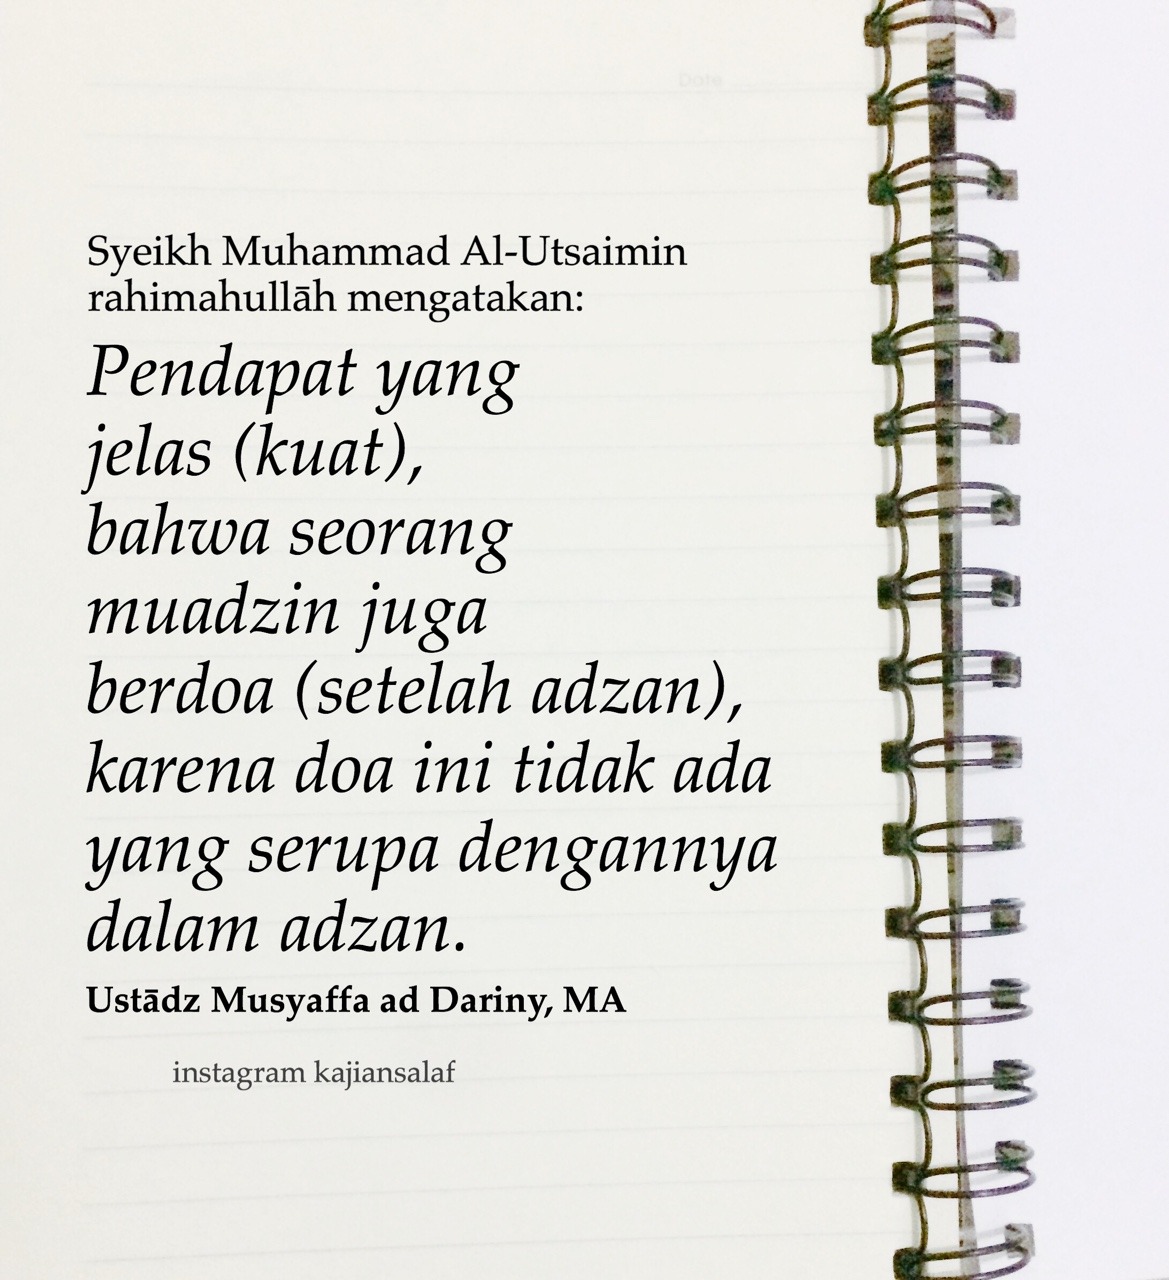 Date
Syeikh Muhammad Al-Utsaimin
rahimahullāh mengatakan:
Pendapat yang
jelas (kuat),
bahwa seorang
muadzin juga
berdoa (setelah adzan),
karena doa ini tidak ada
yang serupa dengannya
dalam adzan.
Ustādz Musyaffa ad Dariny, MA
instagram kajiansalaf